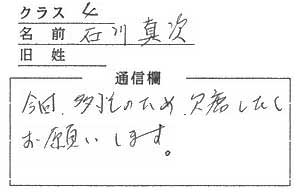 クラス 4
名前 石川真次
旧姓
通信欄
今回、多忙のため、欠席したく
お願いします。